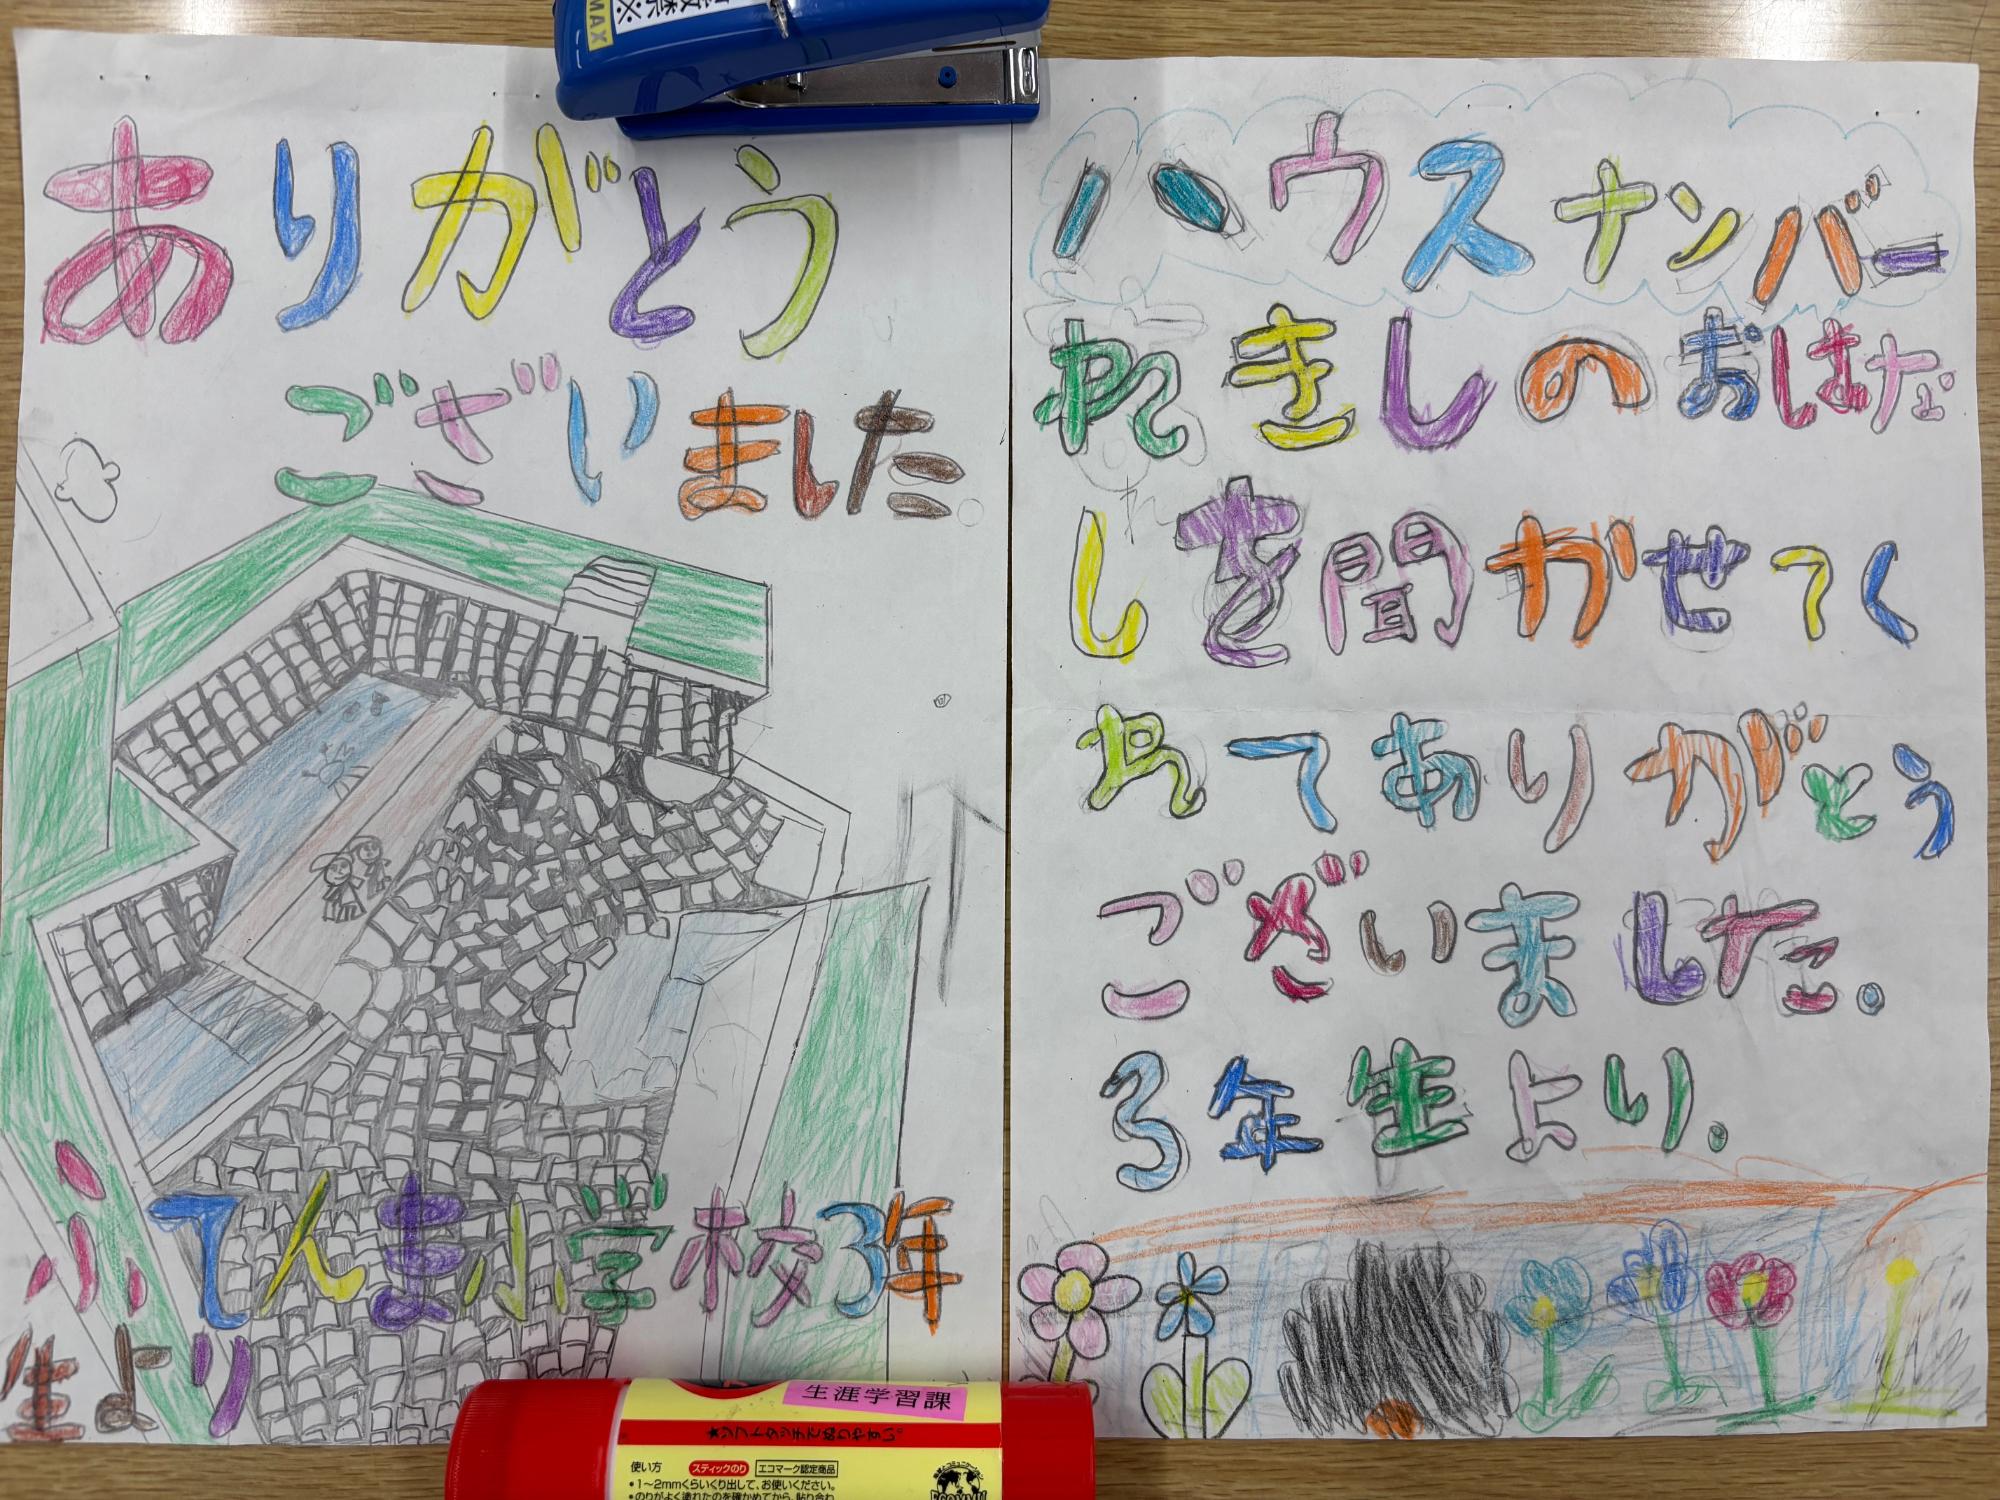 MAX
ありがとう
ございました。
ふてんま小学校3年
生より
ハウスナンバー
れきしのおはな
しを聞かせてく
れてありがとう
ございました。
3年生より。
生涯学習課
★ソフトタッチでぬりやすい。
使い方
スティックのり
エコマーク認定商品
•1～2mmくらいくり出して、お使いください。
•のりがよく塗れたのを確かめてから、貼り合わ